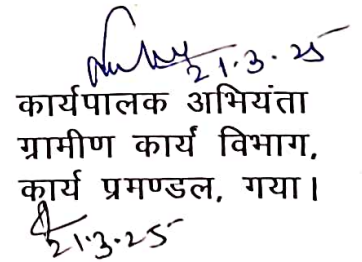 21.3.25
कार्यपालक अभियंता
ग्रामीण कार्य विभाग,
कार्य प्रमण्डल, गया।
21.3.25